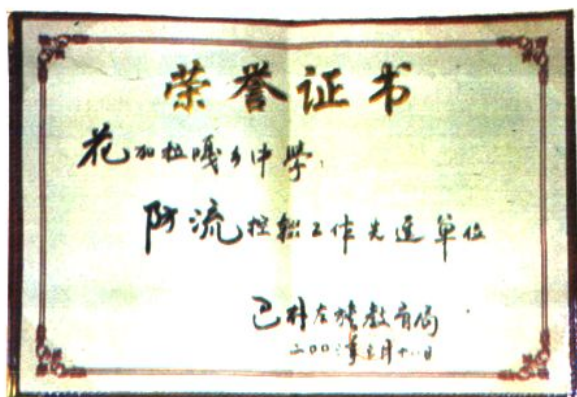 荣誉证书
花加拉嘎乡中学:
防流控辍工作先进单位
巴林左旗教育局
二00 年 月十 日